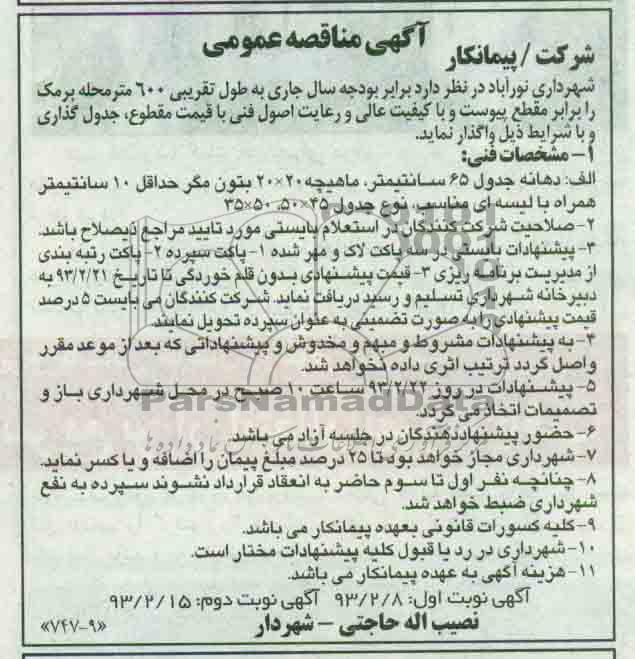 آگهی مناقصه عمومی
شرکت / پیمانکار
شهرداری نورآباد در نظر دارد برابر بودجه سال جاری به طول تقریبی ۶۰۰ مترمحله پرمک
را برابر مقطع پیوست و با کیفیت عالی و رعایت اصول فنی با قیمت مقطوع، جدول گذاری
و با شرایط ذیل واگذار نماید.
۱- مشخصات فنی:
الف: دهانه جدول ۶۵ سانتیمتر، ماهیچه ۲۰×۲۰ بتون مگر حداقل ۱۰ سانتیمتر
همراه با لیسه ای مناسب، نوع جدول ۴۵×۵۰، ۵۰×۳۵
۲- صلاحیت شرکت کنندگان در استعلام بایستی مورد تایید مراجع ذیصلاح باشد.
۳- پیشنهادات بایستی در سه پاکت لاک و مهر شده ۱- پاکت سپرده ۲- پاکت رتبه بندی
از مدیریت برنامه ریزی ۳- قیمت پیشنهادی بدون قلم خوردگی تا تاریخ ۹۳/۲/۲۱ به
دبیرخانه شهرداری تسلیم و رسید دریافت نماید. شرکت کنندگان می بایست ۵ درصد
قیمت پیشنهادی را به صورت تضمینی به عنوان سپرده تحویل نمایند.
۴- به پیشنهادات مشروط و مبهم و مخدوش و پیشنهاداتی که بعد از موعد مقرر
واصل گردد ترتیب اثری داده نخواهد شد.
۵- پیشنهادات در روز ۹۳/۲/۲۲ ساعت ۱۰ صبح در محل شهرداری باز و
تصمیمات اتخاذ می گردد.
ParsNamadData
۶- حضور پیشنهاددهندگان در جلسه آزاد می باشد.
۷- شهرداری مجاز خواهد بود تا ۲۵ درصد مبلغ پیمان را اضافه و یا کسر نماید.
۸- چنانچه نفر اول تا سوم حاضر به انعقاد قرارداد نشوند سپرده به نفع
شهرداری ضبط خواهد شد.
۹- کلیه کسورات قانونی بعهده پیمانکار می باشد.
۱۰- شهرداری در رد یا قبول کلیه پیشنهادات مختار است.
۱۱- هزینه آگهی به عهده پیمانکار می باشد.
آگهی نوبت اول: ۹۳/۲/۸ آگهی نوبت دوم: ۹۳/۲/۱۵
نصیب اله حاجتی - شهردار
«۷۴۷-۹»